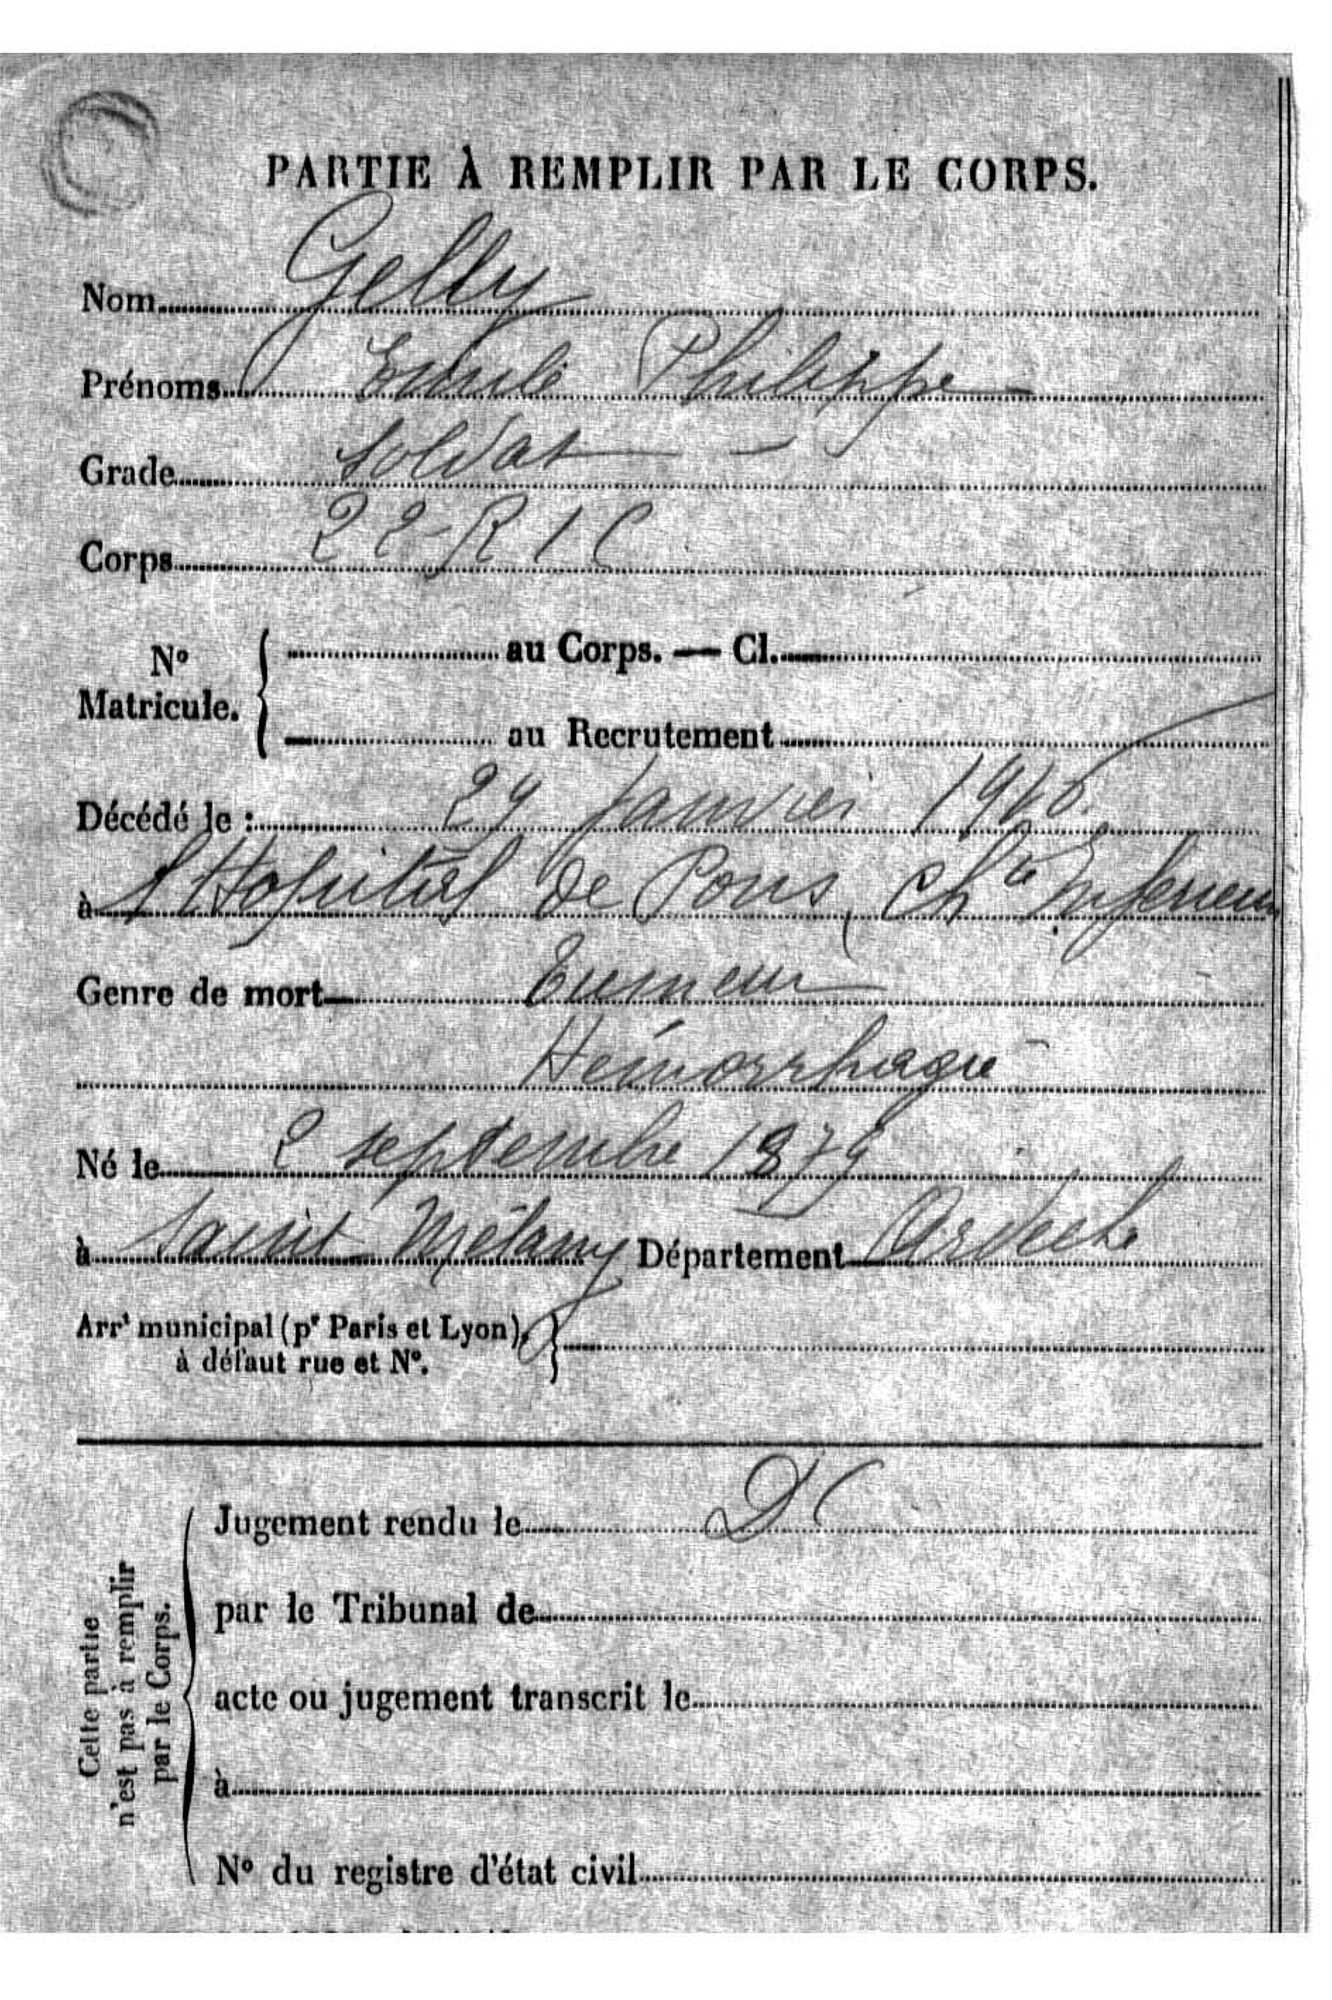 PARTIE À REMPLIR PAR LE CORPS.
Nom Gelly
Prénoms Emile Philippe
Grade soldat
Corps 22 R I C
N° Matricule. au Corps. — Cl.
au Recrutement
Décédé le : 29 janvier 1916
à l'Hopital de Pons, Chte Inferieure
Genre de mort Tumeur
Hémorrhagie
Né le 2 septembre 1879
à Saint-Mélany Département Ardeche
Arrt municipal (pr Paris et Lyon),
à défaut rue et N°.
Cette partie
n'est pas à remplir
par le Corps.
Jugement rendu le
par le Tribunal de
acte ou jugement transcrit le
à
N° du registre d'état civil